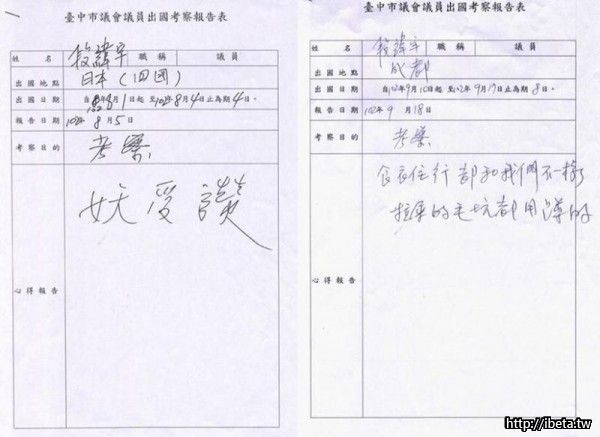 臺中市議會議員出國考察報告表
姓名 段緯宇 職稱 議員
出國地點 日本(四國)
出國日期 自 8月1日起 至102年8月4日止為期4日。
報告日期 102年8月5日
考察目的 考察
妖受讚
心得報告
臺中市議會議員出國考察報告表
姓名 段緯宇 職稱 議員
出國地點 成都
出國日期 自102年9月10日起至102年9月17日止為期8日。
報告日期 102年9月18日
考察目的 考察
食衣住行都和我們不一樣
拉屎的毛坑都用蹲的
心得報告
http://ibeta.tw